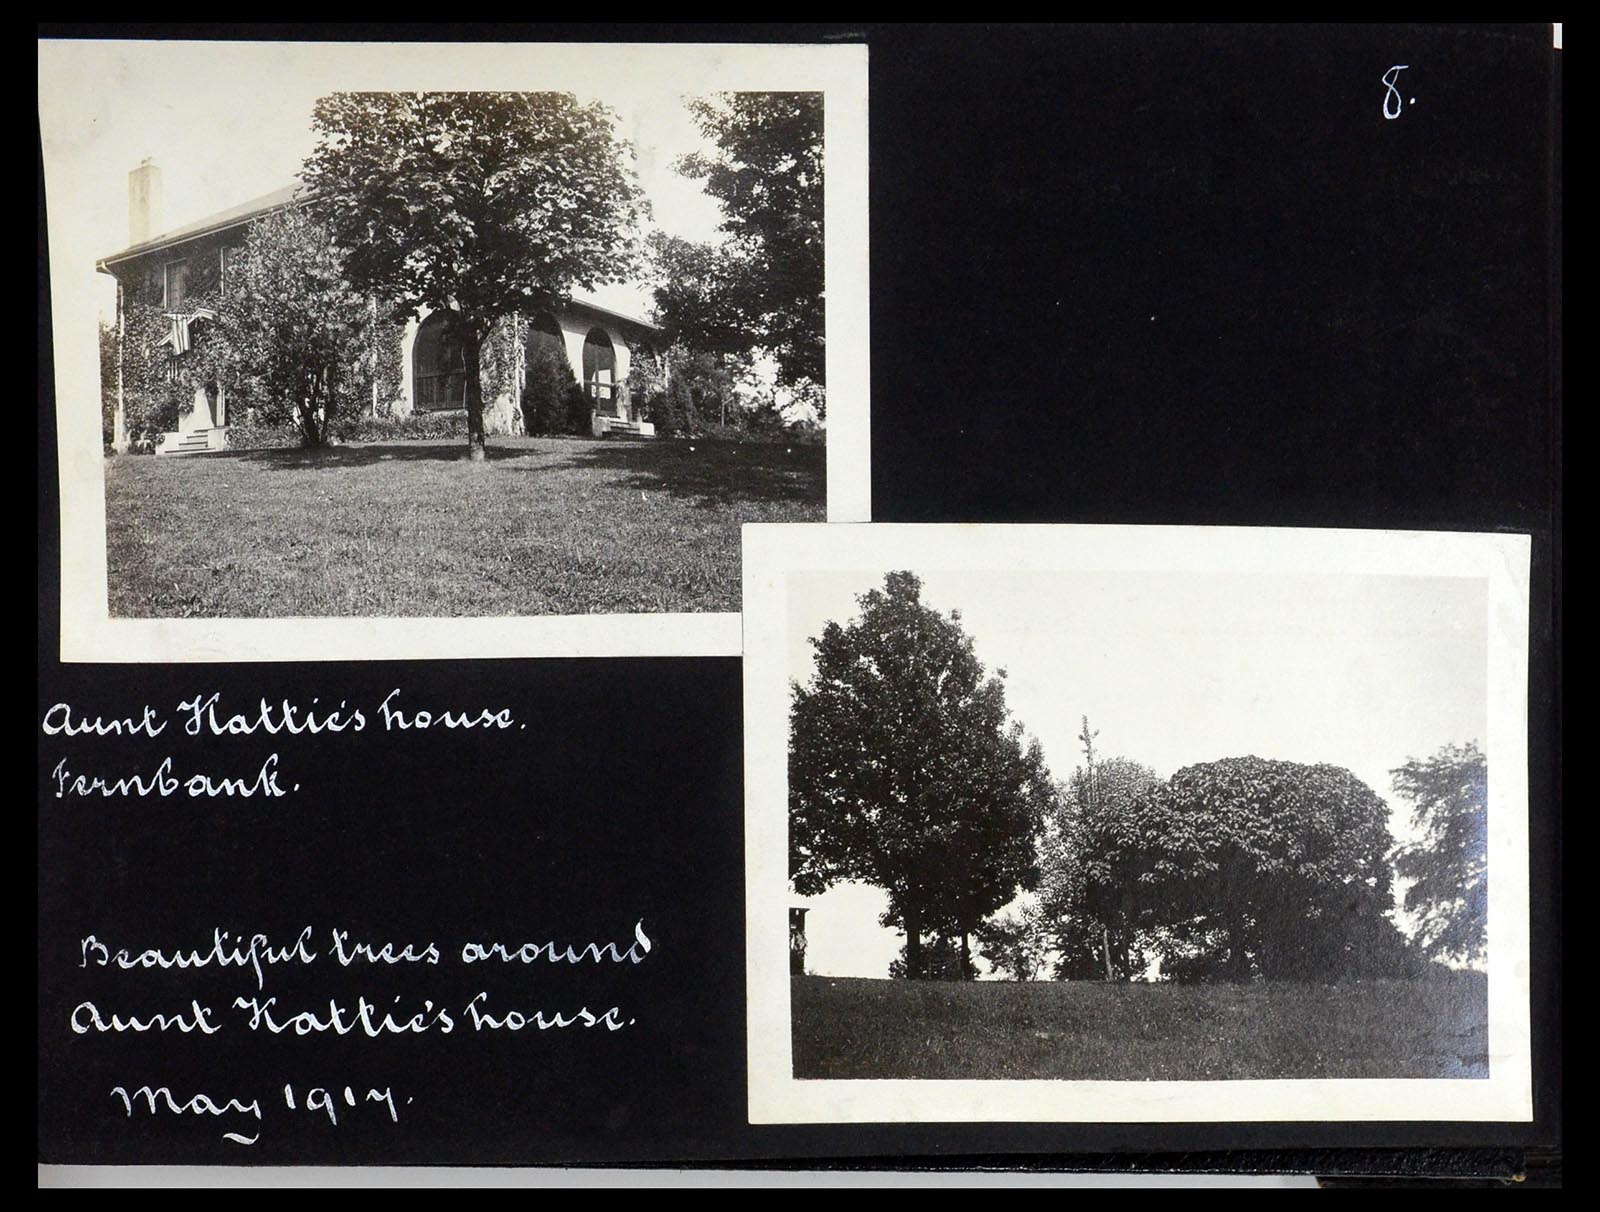 8.
Aunt Hattie's house.
Fernbank.
Beautiful trees around
Aunt Hattie's house.
May 1917.